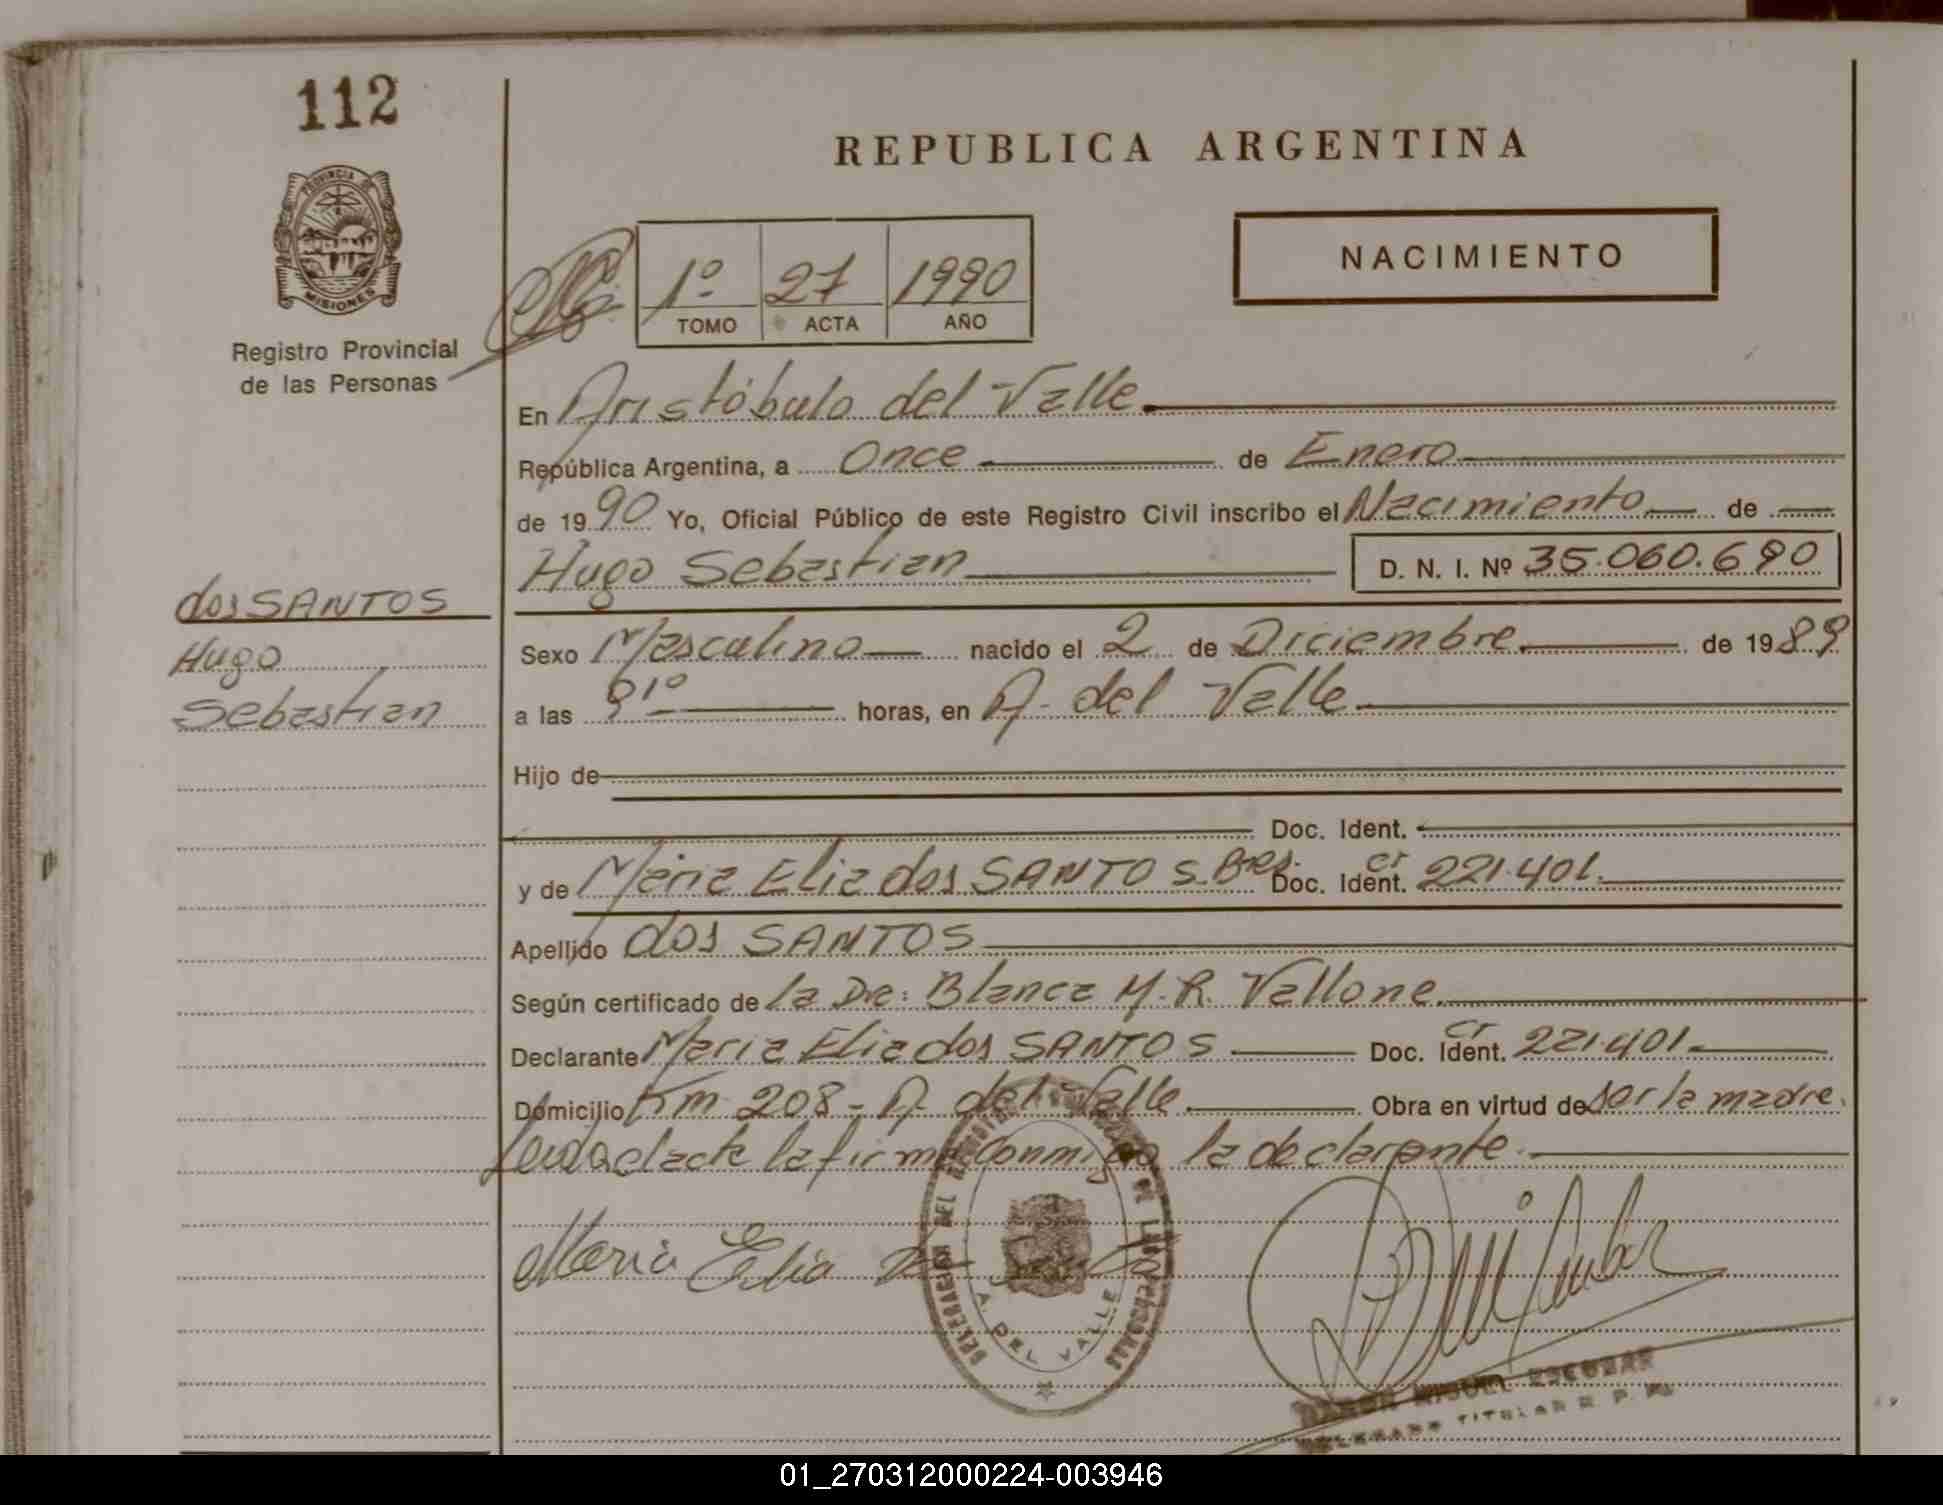 112
REPUBLICA ARGENTINA
PROVINCIA DE
MISIONES
Registro Provincial
de las Personas
1º 27 1990
TOMO ACTA AÑO
NACIMIENTO
En Aristóbulo del Valle
República Argentina, a Once de Enero
de 1990 Yo, Oficial Público de este Registro Civil inscribo el Nacimiento de
Hugo Sebastian D. N. I. Nº 35.060.690
dos SANTOS
Hugo
Sebastian
Sexo Masculino nacido el 2 de Diciembre de 1989
a las horas, en A. del Valle
Hijo de
Doc. Ident.
y de Maria Elia dos SANTOS. Bras. Doc. Ident. CI 221.401.
Apellido dos SANTOS
Según certificado de la Dra: Blanca M. R. Vallone.
Declarante Maria Elia dos SANTOS Doc. Ident. CI 221.401.
Domicilio Km 208 - A. del Valle Obra en virtud de ser la madre.
Leida el acta la firma Conmigo la declarante.
Maria Elia
A. DEL VALLE
MIGUEL ESCOBAR
TITULAR R. P. P.
01_270312000224-003946